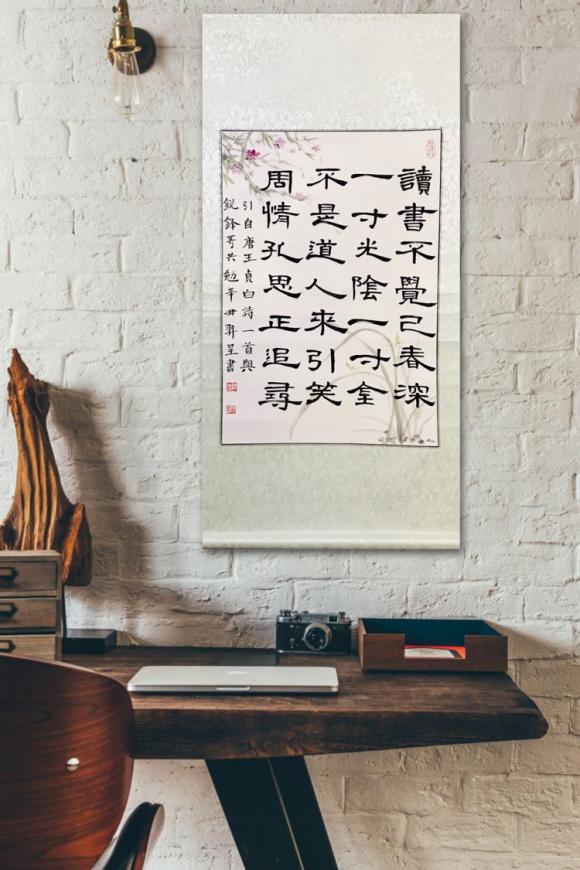 讀書不覺已春深
一寸光陰一寸金
不是道人來引笑
周情孔思正追尋
引自唐王貞白詩一首與
銳鋒哥共勉辛丑羿呈書